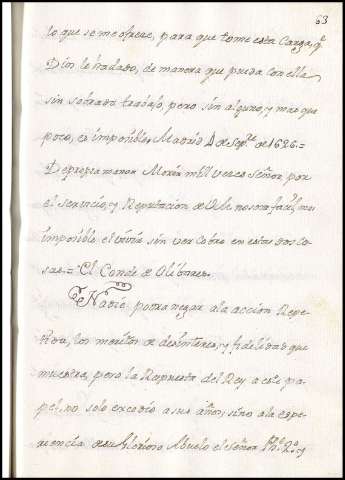 63
lo que se me ofrece, para que tome esta Carga, q̃
Dios le ha dado, de manera que pueda con ella
sin sobrado trabajo, pero sin alguno, y mas que
poco, es imposible. Madrid 4 de Sep.re de 1626.=
De propia mano= Moriré mill veces Señor por
el servicio, y Reputacion de V.M. no sera facil mas
imposible el vivir sin ver cobro en estas dos co-
sas.= El Conde de Olibares.
Nadie podra negar a la acción Repe-
tida, los meritos de desinteres, y fidelidad que
muestra, pero la Repuesta del Rey a este pa-
pel, no solo excedio a sus años, sino a la espe-
riencia de su Glorioso Abuelo el Señor Ph.e 2.o y